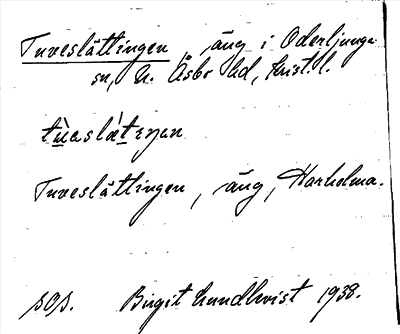 Tuveslättingen, äng i Oderljunga
sn, N. Åsbo hd, Krist. l.
Tuveslättingen, äng, Harholma.
sos. Birgit Lundkvist 1938.